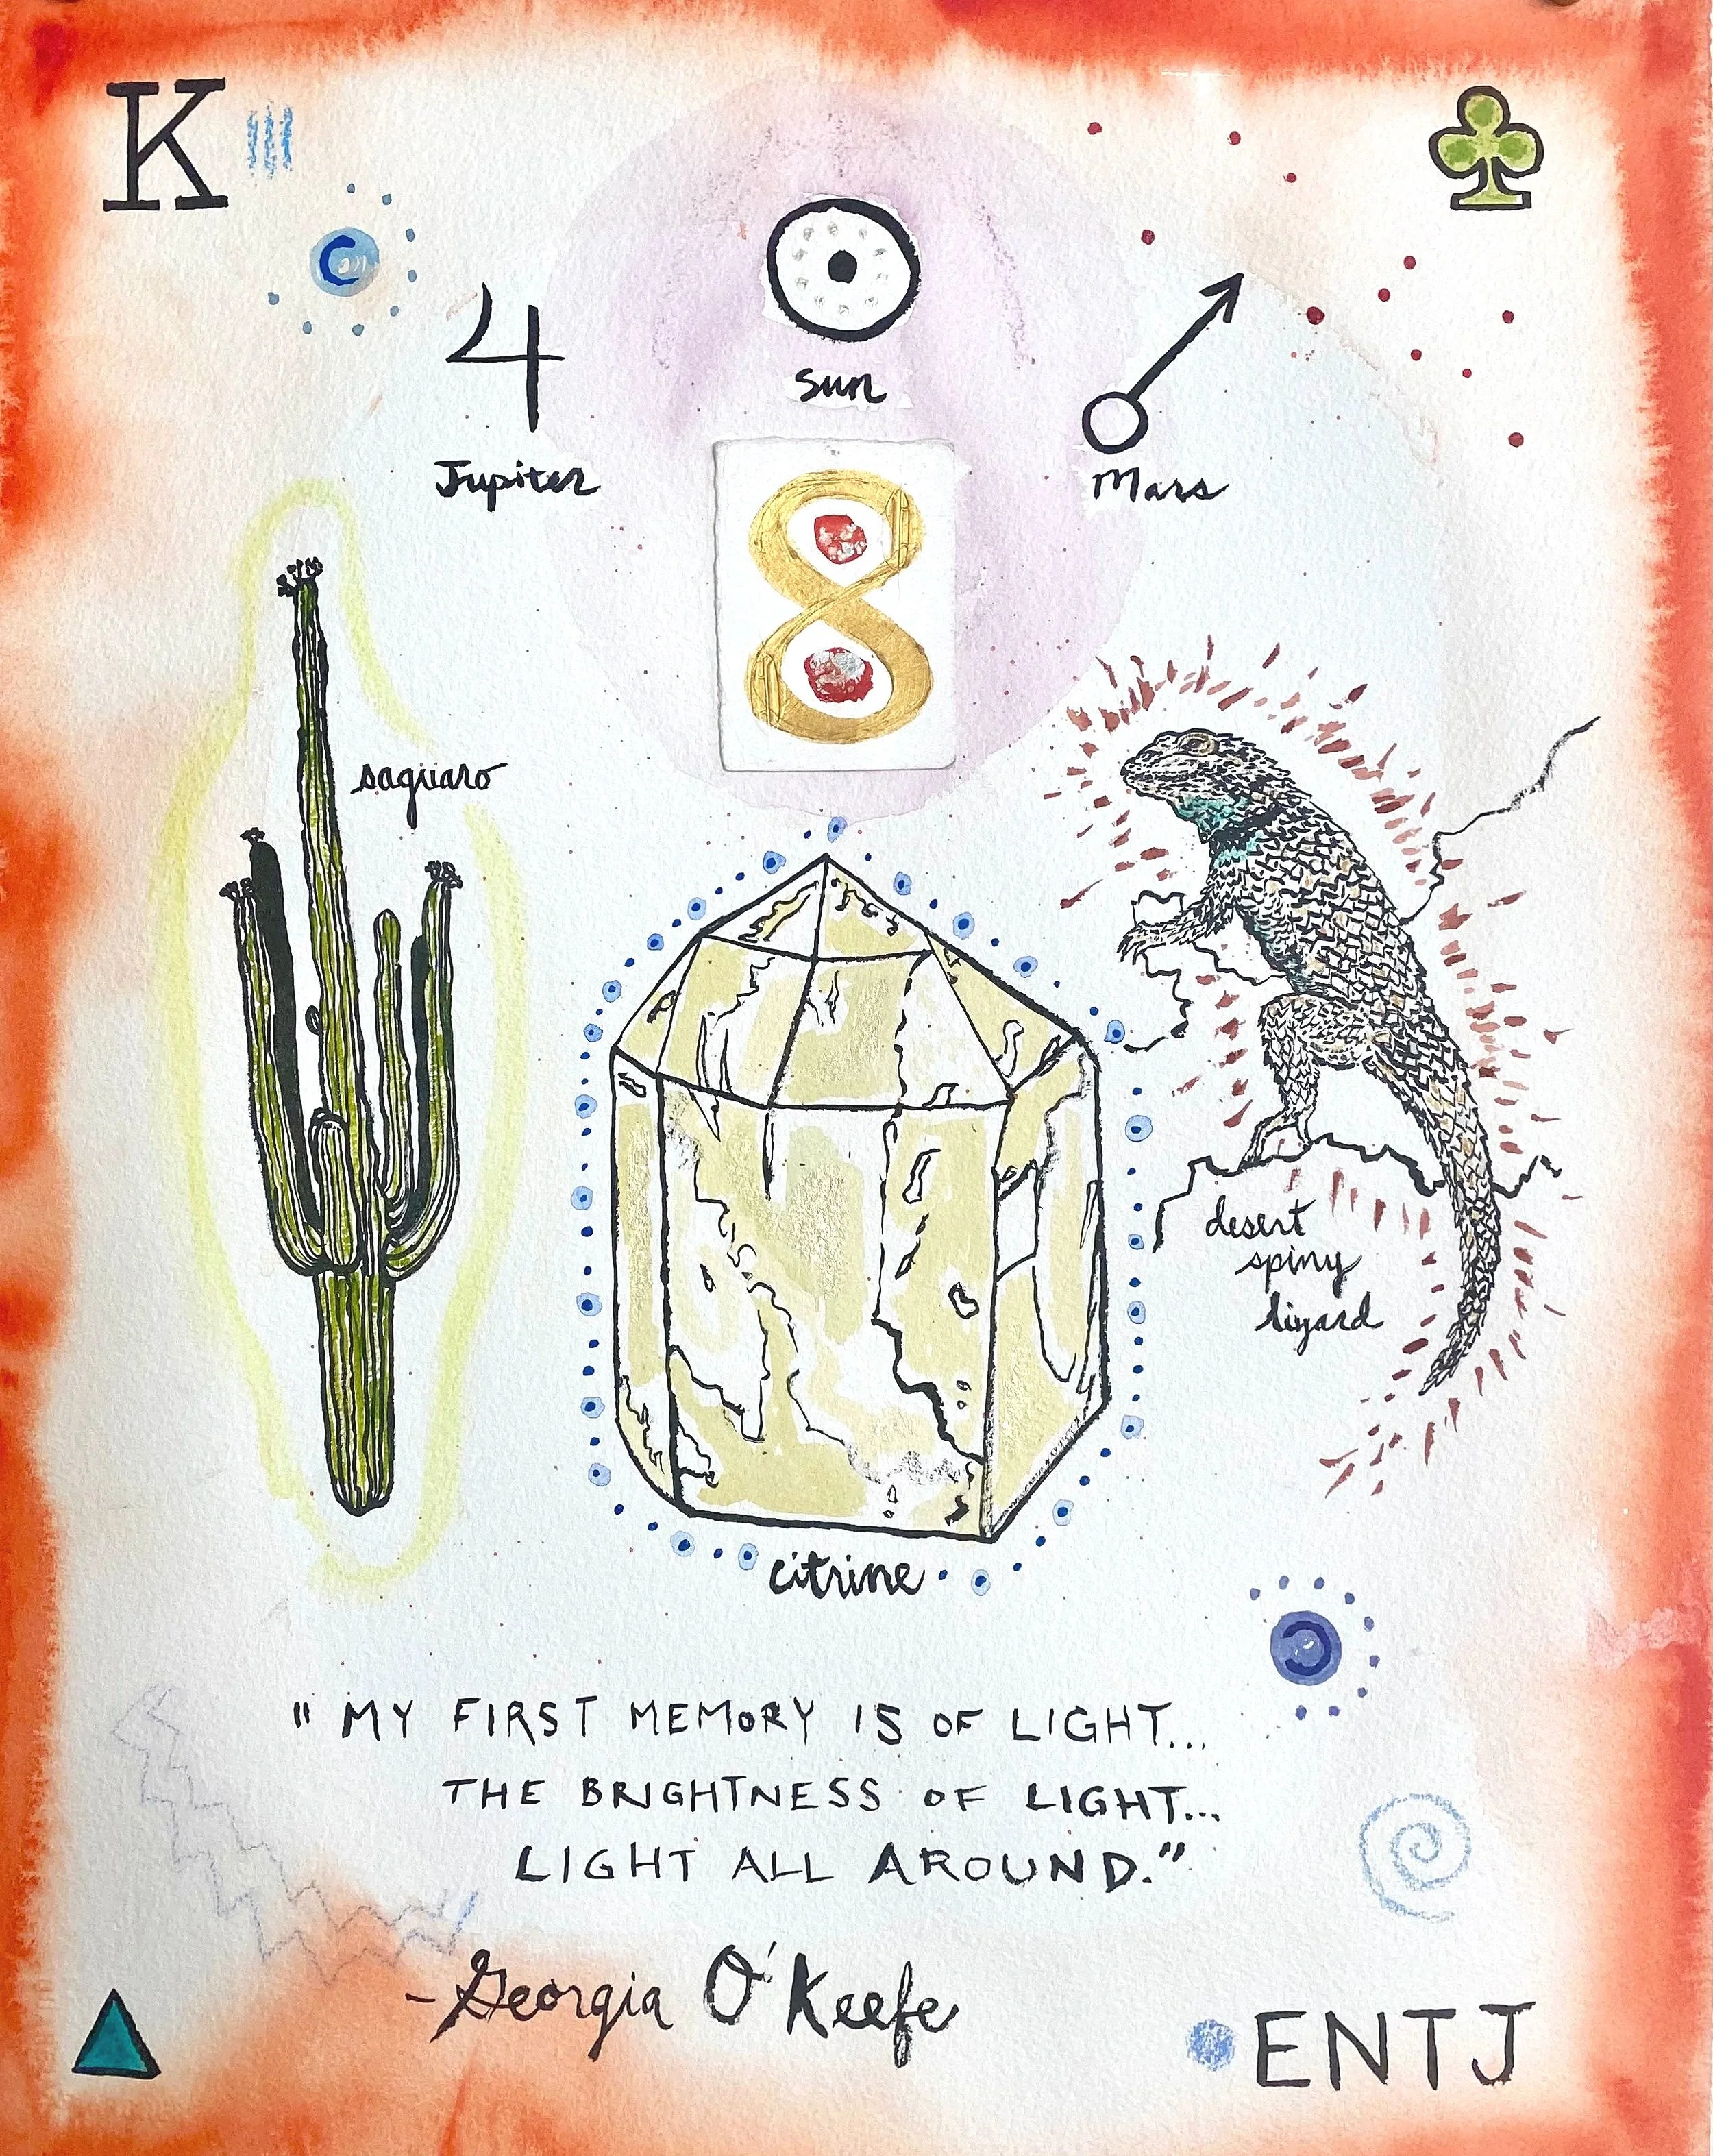 K
Sun
Jupiter
Mars
8
saguaro
desert
spiny
lizard
citrine
"MY FIRST MEMORY IS OF LIGHT...
THE BRIGHTNESS OF LIGHT...
LIGHT ALL AROUND."
-Georgia O'Keefe
ENTJ